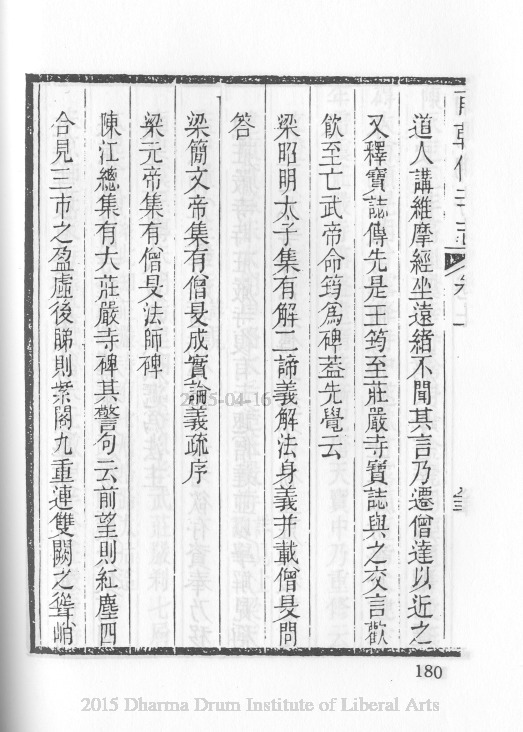 道人講維摩經坐遠緒不聞其言乃遷僧達以近之
又釋寶誌傳先是王筠至莊嚴寺寶誌與之交言歡
飮至亡武帝命筠爲碑葢先覺云
梁昭明太子集有解二諦義解法身義并載僧旻問
答
梁簡文帝集有僧旻成實論義疏序
梁元帝集有僧旻法師碑
陳江總集有大莊嚴寺碑其警句云前望則紅塵四
合見三市之盈虛後睇則紫閣九重連雙闕之聳峭
180
2015 Dharma Drum Institute of Liberal Arts